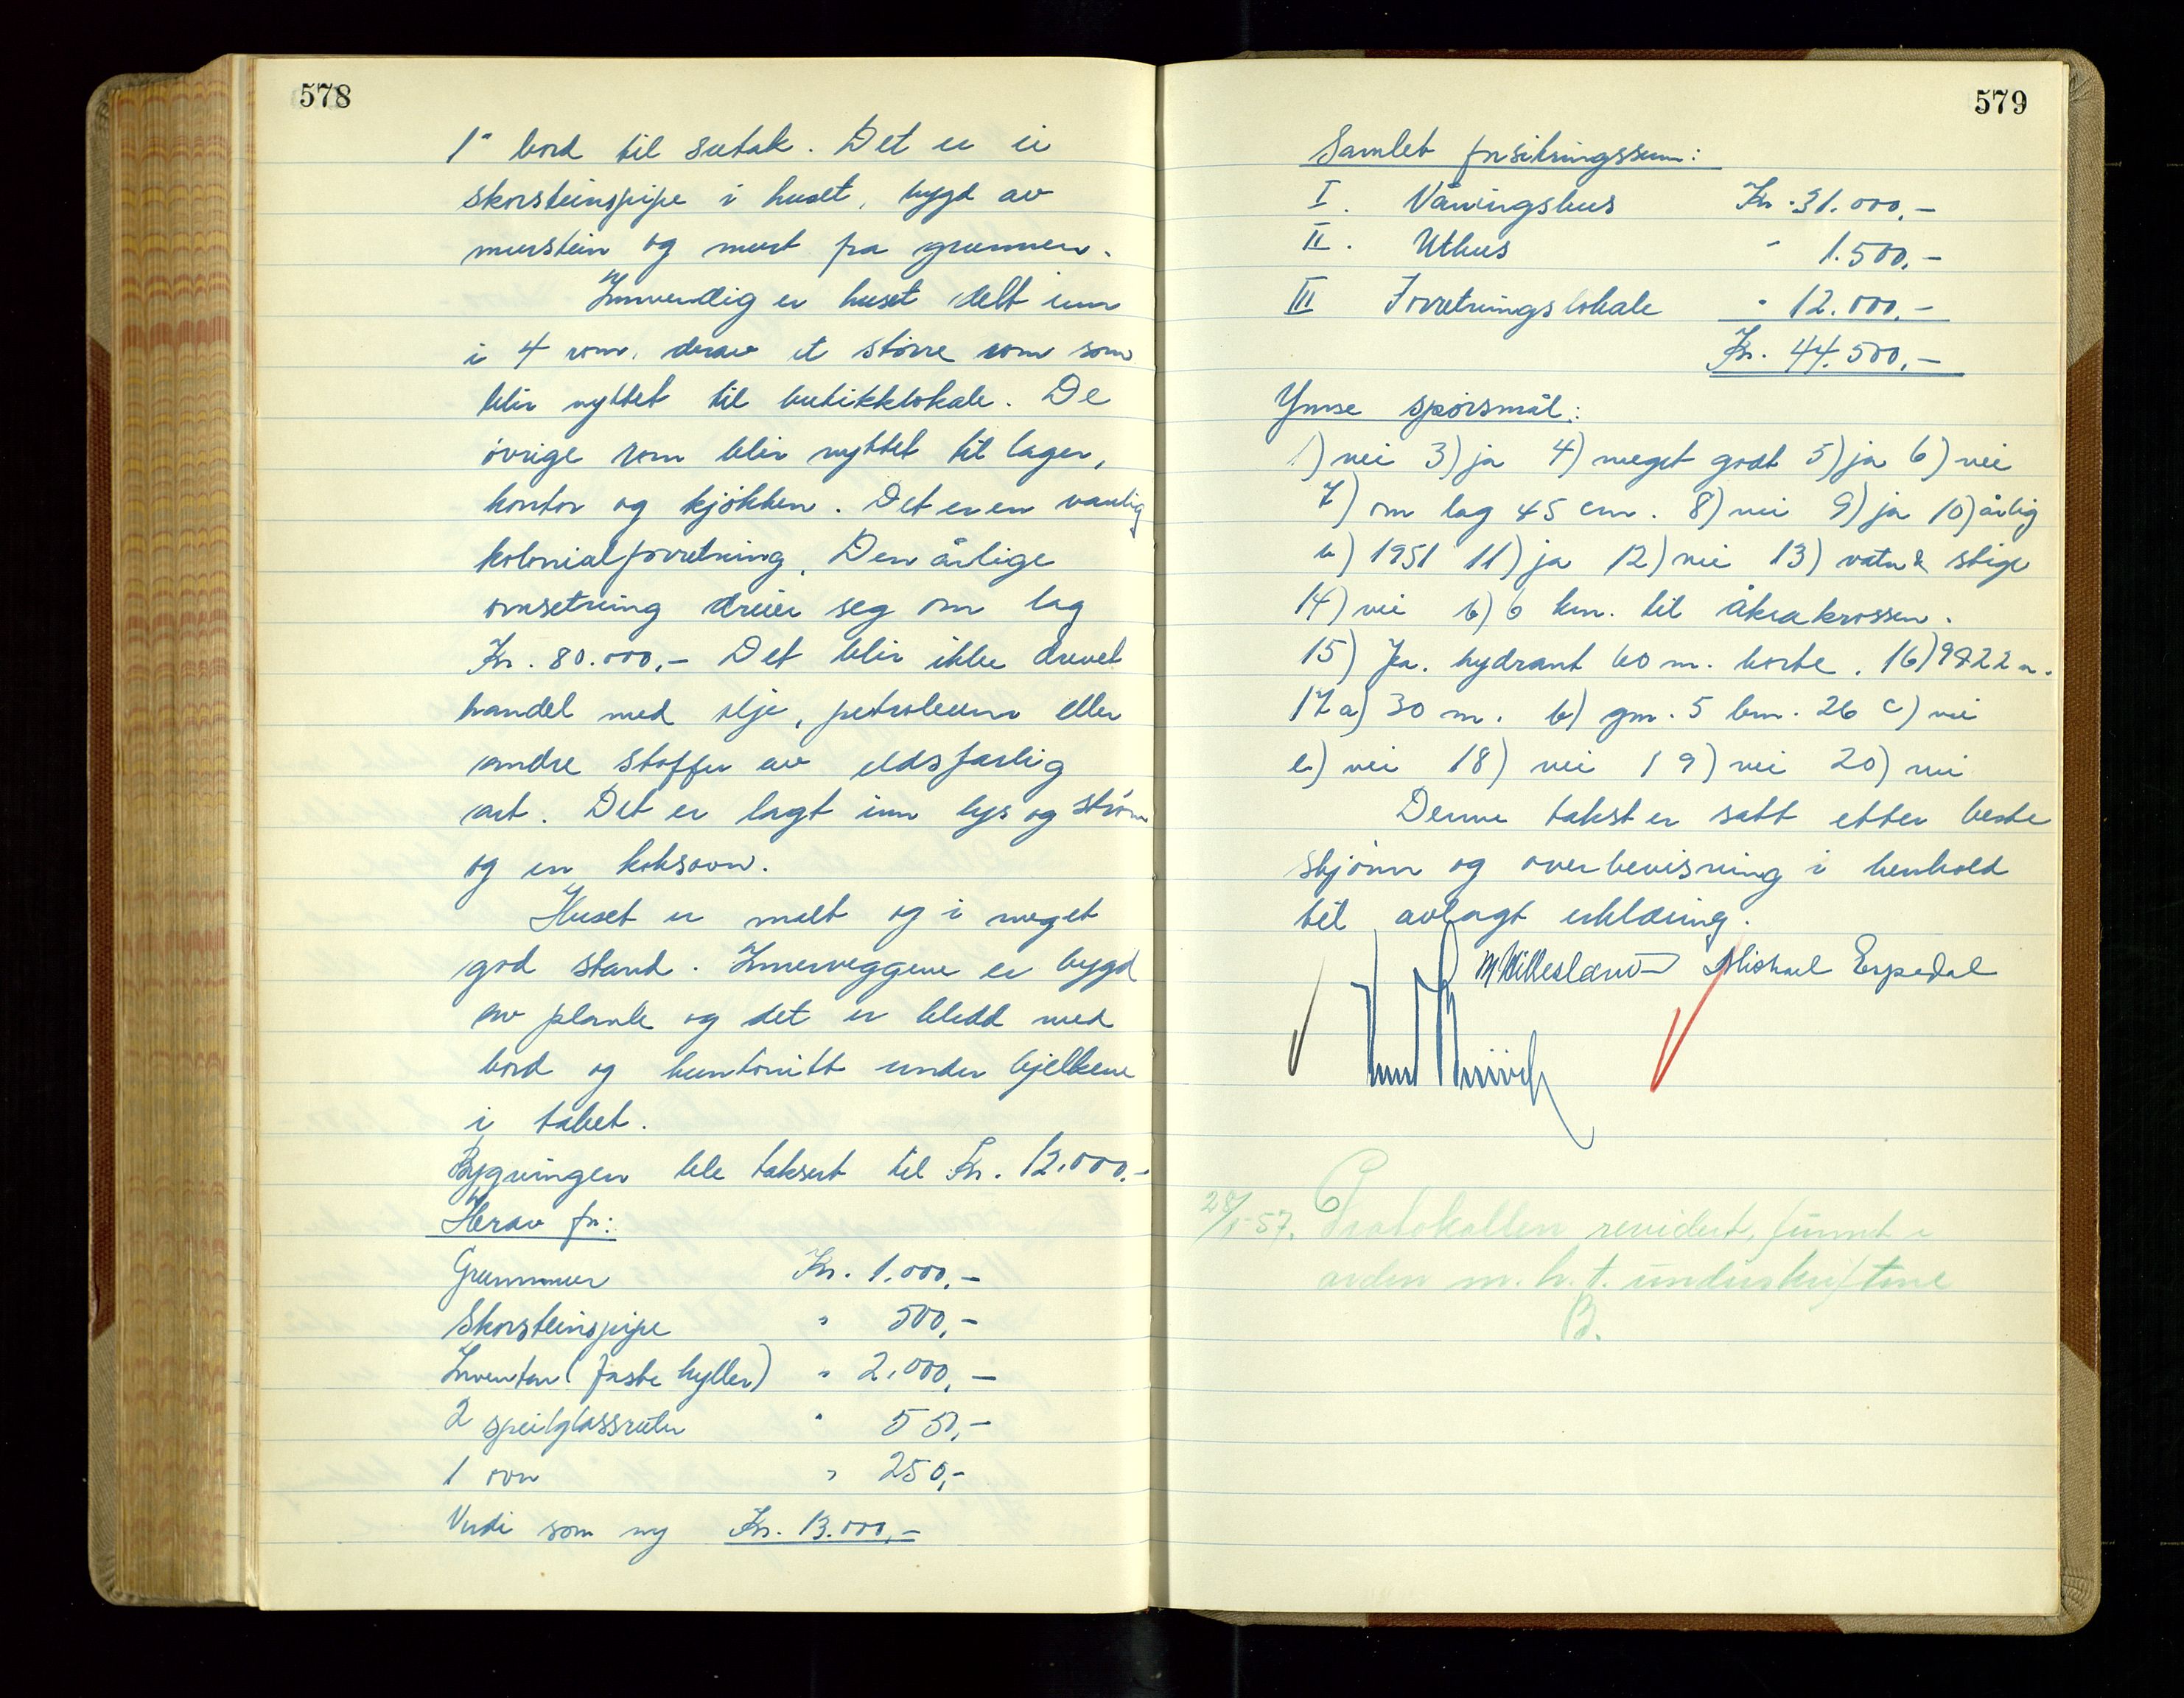 578
1" bord til sutak. Det er ei
skorsteinspipe i huset, bygd av
murstein og murt fra grunnen.
Innvendig er huset delt inn
i 4 rom, derav et större rom som
blir nyttet til butikklokale. De
övrige rom blir nyttet til lager,
kontor og kjökken. Det er en vanlig
kolonialforretning. Den årlige
omsetning dreier seg om lag
Kr. 80.000,- Det blir ikke drevet
handel med olje, petroleum eller
andre stoffer av eldsfarlig
art. Det er lagt inn lys og ström
og en koksovn.
Huset er malt og i meget
god stand. Innerveggene er bygd
av plank og det er kledd med
bord og huntonitt under bjelkene
i taket.
Bygningen ble taksert til Kr. 12.000.-
Herav for:
Grunnmur Kr. 1.000,-
Skorsteinspipe " 500,-
Inventar (faste hyller) " 2.000,-
2 speilglassruter " 550,-
1 ovn " 250,-
Verdi som ny Kr. 13.000,-
579
Samlet forsikringssum:
I. Våningshus Kr. 31.000,-
II. Uthus " 1.500,-
III Forretningslokale " 12.000.-
Kr. 44.500,-
Ymse spörsmål:
1) nei 3) ja 4) meget godt 5) ja 6) nei
7) om lag 45 cm. 8) nei 9) ja 10) årlig
b) 1951 11) ja 12) nei 13) vatn & stige
14) nei b) 6 km. til åkrakrossen.
15) Ja. hydrant 60 m. borte. 16)
17 a) 30 m. b) gnr. 5 bnr. 26 c) nei
e) nei 18) nei 19) nei 20) nei
Denne takst er satt etter beste
skjönn og overbevisning i henhold
til avlagt erklæring.
Michael Espedal
28/1-57. Protokollen revidert, funnet i
orden m.h.t. underskriftene
B.